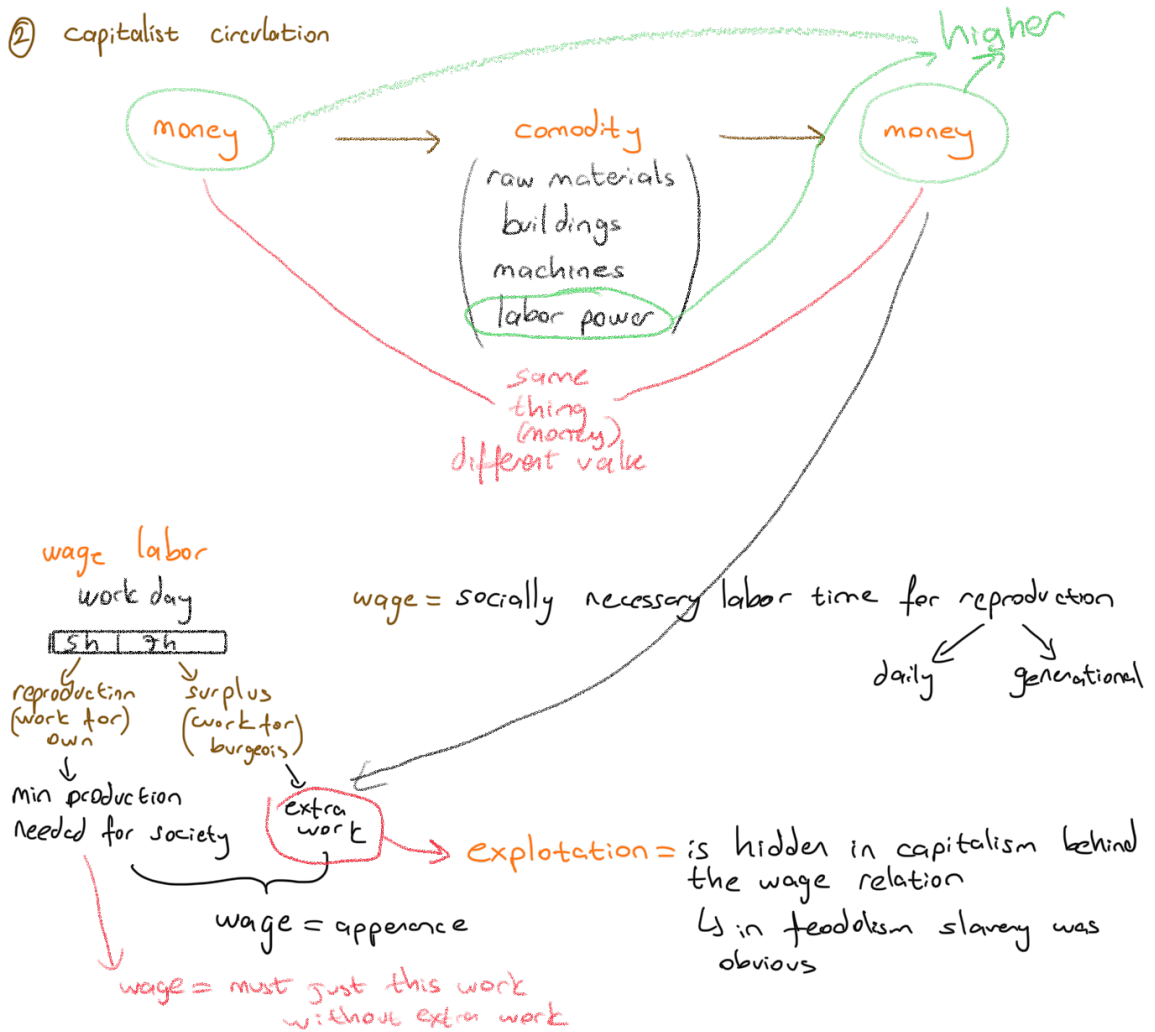 ② capitalist circulation
higher
money
comodity
money
raw materials
buildings
machines
labor power
same
thing
(money)
different value
wage labor
work day
5h 7h
reproduction
(work for)
own
surplus
(work for)
burgeois
wage = socially necessary labor time for reproduction
daily
generational
min production
needed for society
extra
work
explotation = is hidden in capitalism behind
the wage relation
↳ in feodolism slavery was
obvious
wage = apperance
wage = must just this work
without extra work